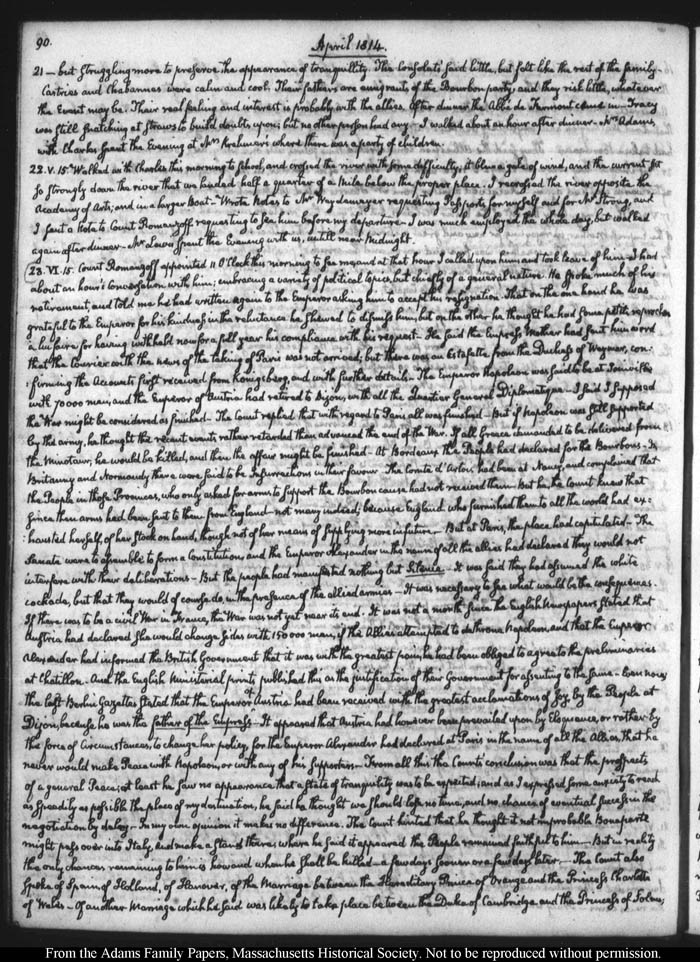 90.
April 1814.
21 — but struggling more to preserve the appearance of tranquillity. The Consolate said little, but felt like the rest of the family.
Castries and Chabannes were calm and cool. Their fathers are emigrants of the Bourbon party, and they risk little, whatever
the Event may be. Their real feeling and interest is probably with the allies. After dinner the Abbé de Fermont came in — Tracy
was still snatching at straws to build doubts upon; but no other person had any. I walked about an hour after dinner. Mrs. Adams,
with Charles spent the Evening at Mrs. Krehmer's where there was a party of children.
22. V. 15. Walked with Charles this morning to School, and crossed the river with some difficulty; it blew a gale of wind, and the current set
so strongly down the river that we landed half a quarter of a Mile below the proper place. I recrossed the river opposite the
Academy of Arts; and in a larger Boat. Wrote Notes to Mr Weydemeyer requesting Passports for myself and for Mr Strong, and
I sent a Note to Count Romanzoff requesting to see him before my departure. I was much employed the whole day, but walked
again after dinner. Mr Lewis spent the Evening with us, until near Midnight.
23. VI. 15. Count Romanzoff appointed 11 O'Clock this morning to see me and at that hour I called upon him and took leave of him. I had
about an hour's conversation with him; embracing a variety of political topics, but chiefly of a general nature. He spoke much of his
retirement and told me he had written again to the Emperor asking him to accept his resignation. That on the one hand he was
grateful to the Emperor for his kindness in the reluctance he shewed to dismiss him, but on the other he thought he had some petits reproches
a lui faire for having withheld now for a full year his compliance with his request. He said the Empress Mother had sent him word
that the Courier with the news of the taking of Paris was not arrived; but there was an Estafette from the Duchess of Weymar, con:
:firming the Accounts first received from Königsberg, and with further details. The Emperor Napoleon was said to be at Joinville
with 70000 men, and the Emperor of Austria had retired to Dijon, with all the Quartier General Diplomatique. I said I supposed
the War might be considered as finished. The Count replied that with regard to Paris all was finished. But if Napoleon was still supported
by the army, he thought this recent events rather retarded than advanced the end of the War. If all Greece demanded to be delivered from
the Minotaur, he would be killed, and then the affair might be finished. At Bordeaux the People had declared for the Bourbons. In
Britanny and Normandy there were said to be Insurrections in their favour. The Comte d'Artois had been at Nancy, and complained that
the People in those Provinces, who only asked for arms to support the Bourbon cause had not received them. But he, the Count knew that
since then arms had been sent to them from England — not many indeed; because England who furnished them to all the world had ex:
:hausted herself, of her stock on hand, though not of her means of supplying more in future. But at Paris, the place had capitulated. The
Senate were to assemble to form a Constitution, and the Emperor Alexander in the name of all the allies had declared they would not
interfere with their deliberations. But the people had manifested nothing but Silence. It was said they had assumed the white
cockade, but that they would of course do in the presence of the allied armies. It was necessary to see what would be the consequences.
If there was to be a civil War in France, the War was not yet near its end. It was not a month since the English Newspapers stated that
Austria had declared she would change sides with 150000 men, if the Allies attempted to dethrone Napoleon, and that the Emperor
Alexander had informed the British Government that it was with the greatest pain, he had been obliged to agree to the preliminaries
at Chatillon. And the English Ministerial prints published this as the justification of their Government for assenting to the same. Even now,
the last Berlin Gazettes stated that the Emperor of Austria had been received with the greatest acclamations of Joy, by the People at
Dijon, because he was the father of the Empress. It appeared that Austria had however been prevailed upon by Eloquence, or rather by
the force of Circumstances, to change her policy, for the Emperor Alexander had declared at Paris in the name of all the Allies, that he
never would make Peace with Napoleon, or with any of his supporters. From all this the Count's conclusion was that the prospects
of a general Peace; at least he saw no appearance that a State of tranquility was to be expected; and as I expressed some anxiety to reach
as speedily as possible the place of my destination, he said he thought we should lose no time, and no chance of eventual success in the
negotiation by delay. In my own opinion it makes no difference. The Count hinted that he thought it not improbable Bonaparte
might pass over into Italy, and make a stand there; where he said it appeared the People remained faithful to him. But in reality
the only chances remaining to him is how and when he shall be killed — a few days sooner or a few days later. The Count also
spoke of Spain, of Holland, of Hanover, of the Marriage between the Hereditary Prince of Orange and the Princess Charlotte
of Wales. Of another Marriage which he said was likely to take place between the Duke of Cambridge and the Princess of Solms;
From the Adams Family Papers, Massachusetts Historical Society. Not to be reproduced without permission.